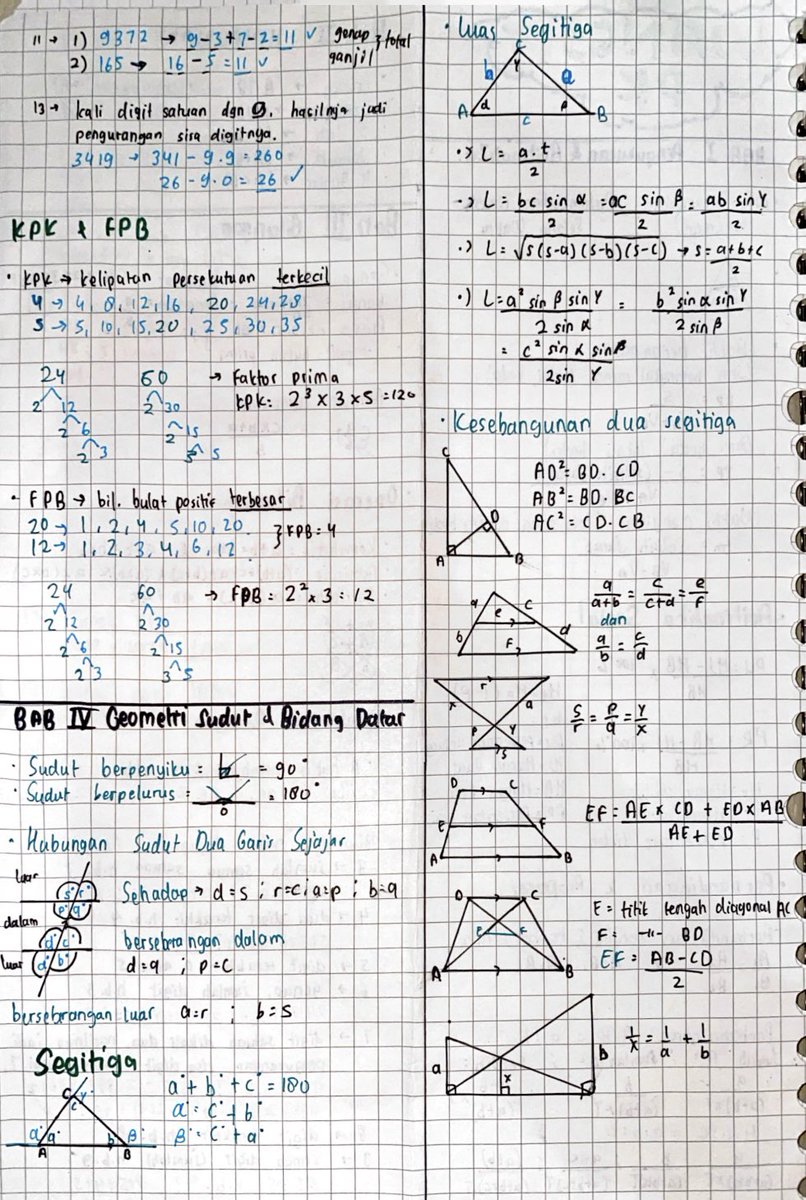 11 → 1) 9372 → 9-3+7-2 = 11 ✓ genap
2) 165 → 16 - 5 = 11 ✓ ganjil } total
13 → kali digit satuan dgn 9, hasilnya jadi
pengurangan sisa digitnya.
3419 → 341 - 9.9 = 260
26 - 9.0 = 26 ✓
KPK & FPB
• KPK → kelipatan persekutuan terkecil
4 → 4, 8, 12, 16, 20, 24, 28
5 → 5, 10, 15, 20, 25, 30, 35
24 60 → Faktor prima
2 12 2 30 KPK: 2³ × 3 × 5 = 120
2 6 2 15
2 3 3 5
• FPB → bil. bulat positif terbesar
20 → 1, 2, 4, 5, 10, 20
12 → 1, 2, 3, 4, 6, 12 } FPB = 4
24 60 → FPB = 2² × 3 = 12
2 12 2 30
2 6 2 15
2 3 3 5
BAB IV Geometri Sudut & Bidang Datar
• Sudut berpenyiku = = 90°
• Sudut berpelurus = = 180°
• Hubungan Sudut Dua Garis Sejajar
luar
s° r°
p° q°
Sehadap → d=s ; r=c ; a=p ; b=q
dalam
bersebrangan dalam
luar d° b°
d=q ; p=c
bersebrangan luar a=r ; b=s
Segitiga
a° + b° + c° = 180
a° = c° + b°
β° = c° + a°
C γ c
a° a° b β°
A B
• Luas Segitiga
C
b γ a
A α β B
c
•> L = a.t / 2
•> L = bc sin α / 2 = ac sin β / 2 = ab sin γ / 2
•) L = √s(s-a)(s-b)(s-c) → s = a+b+c / 2
•) L = a² sin β sin γ / 2 sin α = b² sin α sin γ / 2 sin β
= c² sin α sin β / 2 sin γ
• Kesebangunan dua segitiga
C
AD² = BD. CD
AB² = BD. BC
AC² = CD. CB
D
A B
a e c
b F d
a/a+b = c/c+d = e/f
dan
a/b = c/d
r
x q
p y
s
s/r = p/q = y/x
D C
E F
A B
EF = AE × CD + ED × AB / AE + ED
D C
E F
A B
E = titik tengah diagonal AC
F = -11- BD
EF = AB - CD / 2
a x b
1/x = 1/a + 1/b